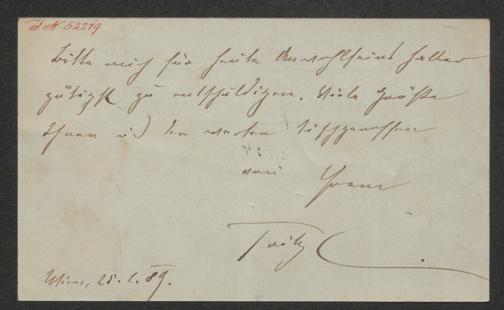 J. N. 52219
Bitte mich für heute Unwohlseins halber
gütigst zu entschuldigen. Viele Grüße
Ihnen und den werten Tischgenossen
von Ihrem
Wien, 25. 2. 89.